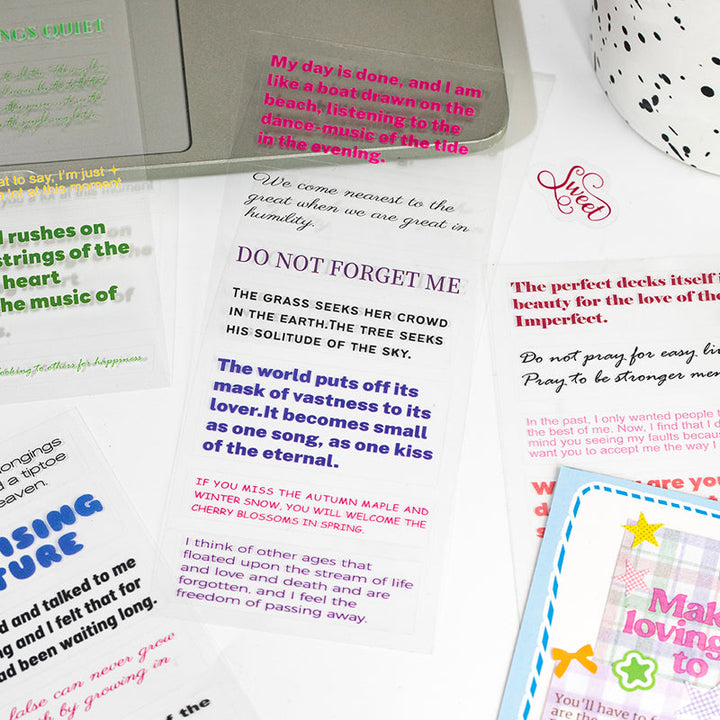 NGS QUIET
at to say, I'm just
a lot at this moment
rushes on
strings of the
heart
he music of
s.
ooking to others for happiness
ongings
d a tiptoe
eaven.
ISING
TURE
d and talked to me
ng and I felt that for
ad been waiting long.
false can never grow
h by growing in
of the
My day is done, and I am
like a boat drawn on the
beach, listening to the
dance-music of the tide
in the evening.
We come nearest to the
great when we are great in
humility.
DO NOT FORGET ME
THE GRASS SEEKS HER CROWD
IN THE EARTH.THE TREE SEEKS
HIS SOLITUDE OF THE SKY.
The world puts off its
mask of vastness to its
lover.It becomes small
as one song, as one kiss
of the eternal.
IF YOU MISS THE AUTUMN MAPLE AND
WINTER SNOW, YOU WILL WELCOME THE
CHERRY BLOSSOMS IN SPRING.
I think of other ages that
floated upon the stream of life
and love and death and are
forgotten, and I feel the
freedom of passing away.
Sweet
The perfect decks itself i
beauty for the love of the
Imperfect.
Do not pray for easy li
Pray to be stronger men
In the past, I only wanted people t
the best of me. Now, I find that I d
mind you seeing my faults becaus
want you to accept me the way I
are you
Mak
loving
to
You'll have to
are the